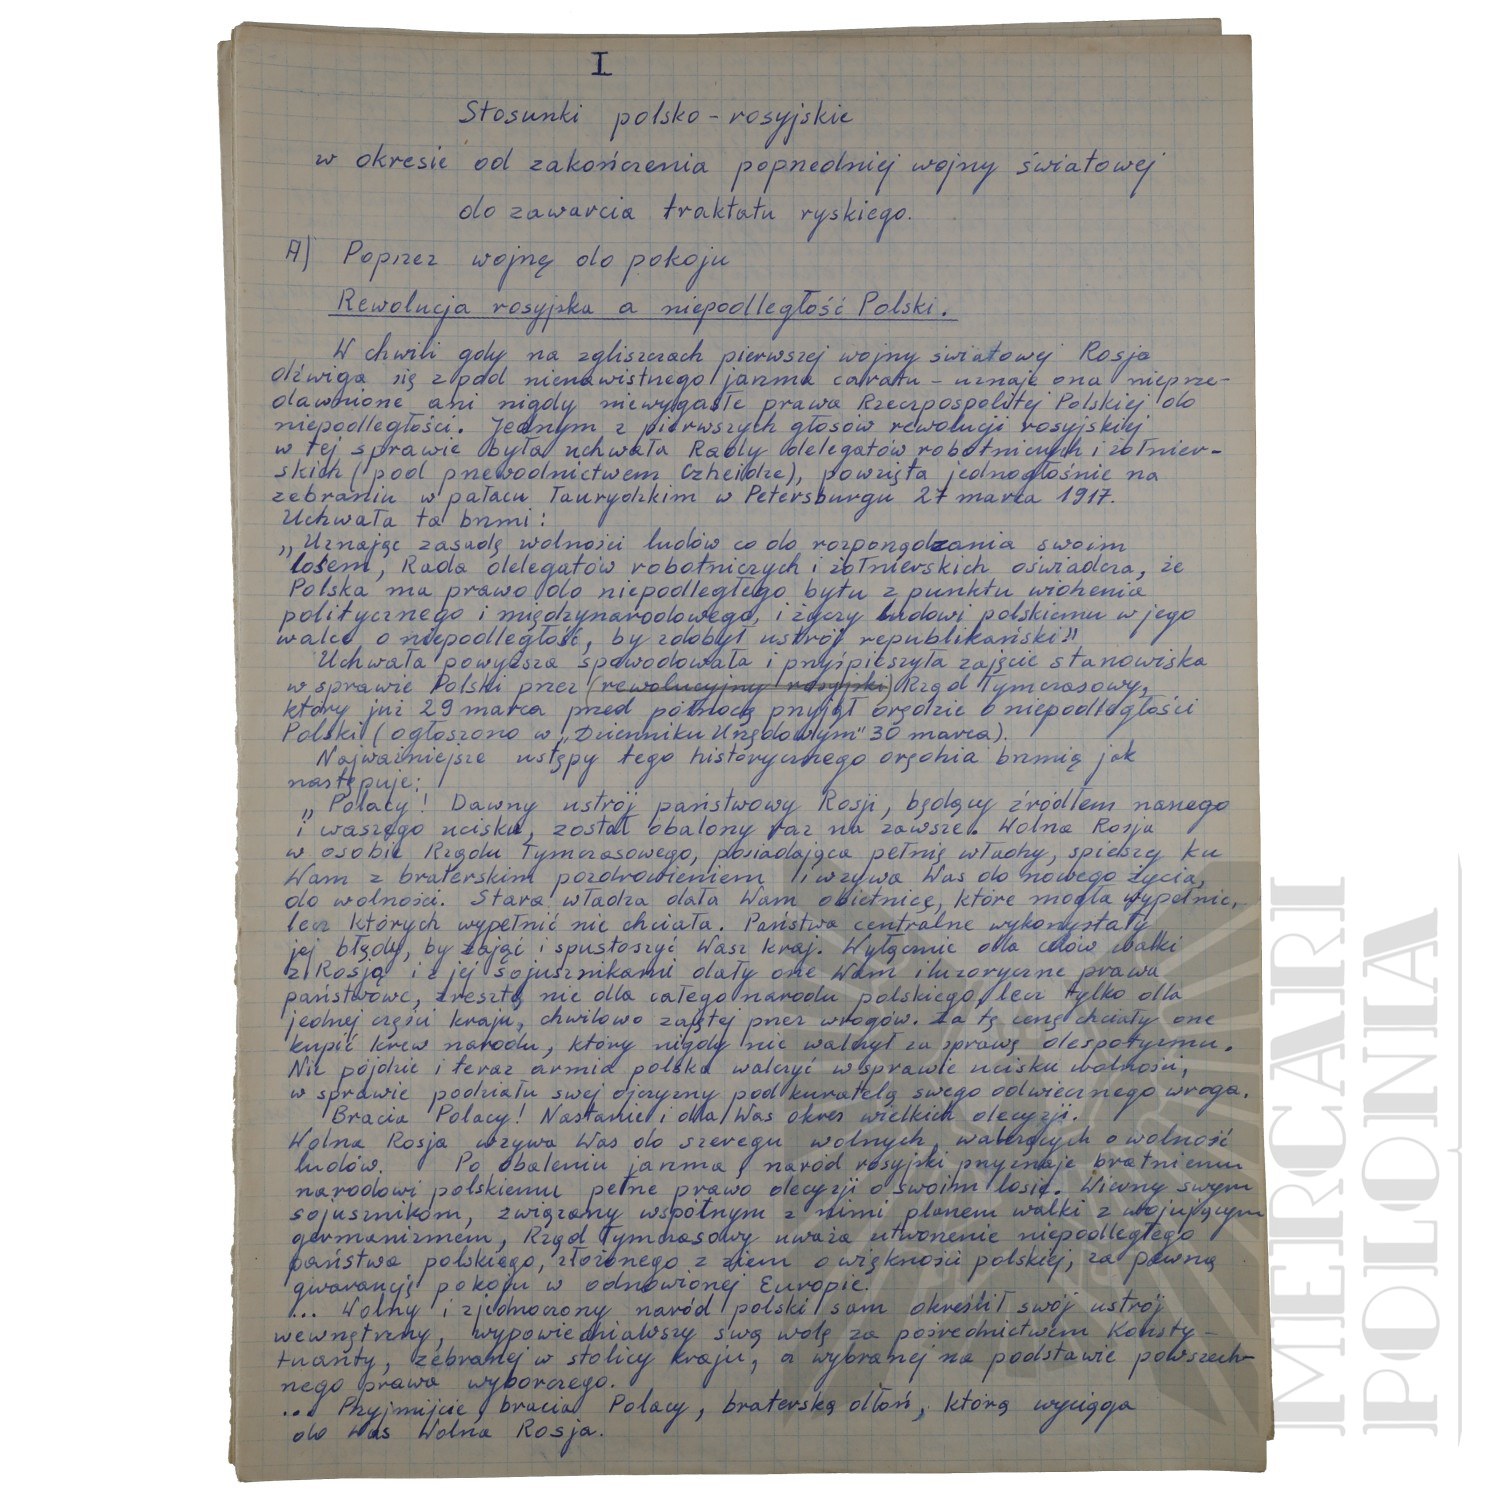 I
Stosunki polsko-rosyjskie
w okresie od zakończenia poprzedniej wojny światowej
do zawarcia traktatu ryskiego.
A) Poprzez wojnę do pokoju
Rewolucja rosyjska a niepodległość Polski.
W chwili gdy na zgliszczach pierwszej wojny światowej Rosja
dźwiga się z pod nienawistnego jarzma caratu – uznaje ona nieprze-
dawnione ani nigdy niewygasłe prawa Rzeczpospolitej Polskiej do
niepodległości. Jednym z pierwszych głosów rewolucji rosyjskiej
w tej sprawie była uchwała Rady delegatów robotniczych i żołnier-
skich (pod przewodnictwem Czheidze), powzięta jednogłośnie na
zebraniu w pałacu Taurydzkim w Petersburgu 27 marca 1917.
Uchwała ta brzmi:
„Uznając zasadę wolności ludów co do rozporządzania swoim
losem, Rada delegatów robotniczych i żołnierskich oświadcza, że
Polska ma prawo do niepodległego bytu z punktu widzenia
politycznego i międzynarodowego, i życzy ludowi polskiemu w jego
walce o niepodległość, by zdobył ustrój republikański"
Uchwała powyższa spowodowała i przyśpieszyła zajęcie stanowiska
w sprawie Polski przez (rewolucyjny rosyjski) Rząd Tymczasowy,
który już 29 marca przed północą przyjął orędzie o niepodległości
Polski (ogłoszono w „Dzienniku Urzędowym" 30 marca).
Najważniejsze ustępy tego historycznego orędzia brzmią jak
następuje:
„Polacy! Dawny ustrój państwowy Rosji, będący źródłem naszego
i waszego ucisku, został obalony raz na zawsze. Wolna Rosja
w osobie Rządu Tymczasowego, posiadająca pełnię władzy, spieszy ku
Wam z braterskim pozdrowieniem i wzywa Was do nowego życia,
do wolności. Stara władza dała Wam obietnicę, które mogła wypełnić,
lecz których wypełnić nie chciała. Państwa centralne wykorzystały
jej błędy, by zająć i spustoszyć Wasz kraj. Wyłącznie dla celów walki
z Rosją i z jej sojusznikami dały one Wam iluzoryczne prawa
państwowe, zresztą nie dla całego narodu polskiego, lecz tylko dla
jednej części kraju, chwilowo zajętej przez wrogów. Za tę cenę chciały one
kupić krew narodu, który nigdy nie walczył za sprawę despotyzmu.
Nie pójdzie i teraz armia polska walczyć w sprawie ucisku wolności,
w sprawie podziału swej ojczyzny pod kuratelą swego odwiecznego wroga.
Bracia Polacy! Nastanie i dla Was okres wielkich decyzji.
Wolna Rosja wzywa Was do szeregu wolnych, walczących o wolność
ludów. Po obaleniu jarzma, naród rosyjski przyznaje bratniemu
narodowi polskiemu pełne prawo decyzji o swoim losie. Wierny swym
sojusznikom, związany wspólnym z nimi planem walki z wojującym
germanizmem, Rząd Tymczasowy uważa utworzenie niepodległego
państwa polskiego, złożonego z ziem o większości polskiej, za pewną
gwarancję pokoju w odnowionej Europie.
... Wolny i zjednoczony naród polski sam określił swój ustrój
wewnętrzny, wypowiedziawszy swą wolę za pośrednictwem Konsty-
tuanty, zebranej w stolicy kraju, a wybranej na podstawie powszech-
nego prawa wyborczego.
... Przyjmijcie, bracia Polacy, braterską dłoń, którą wyciąga
do Was Wolna Rosja.
MERCARI
POLONIA